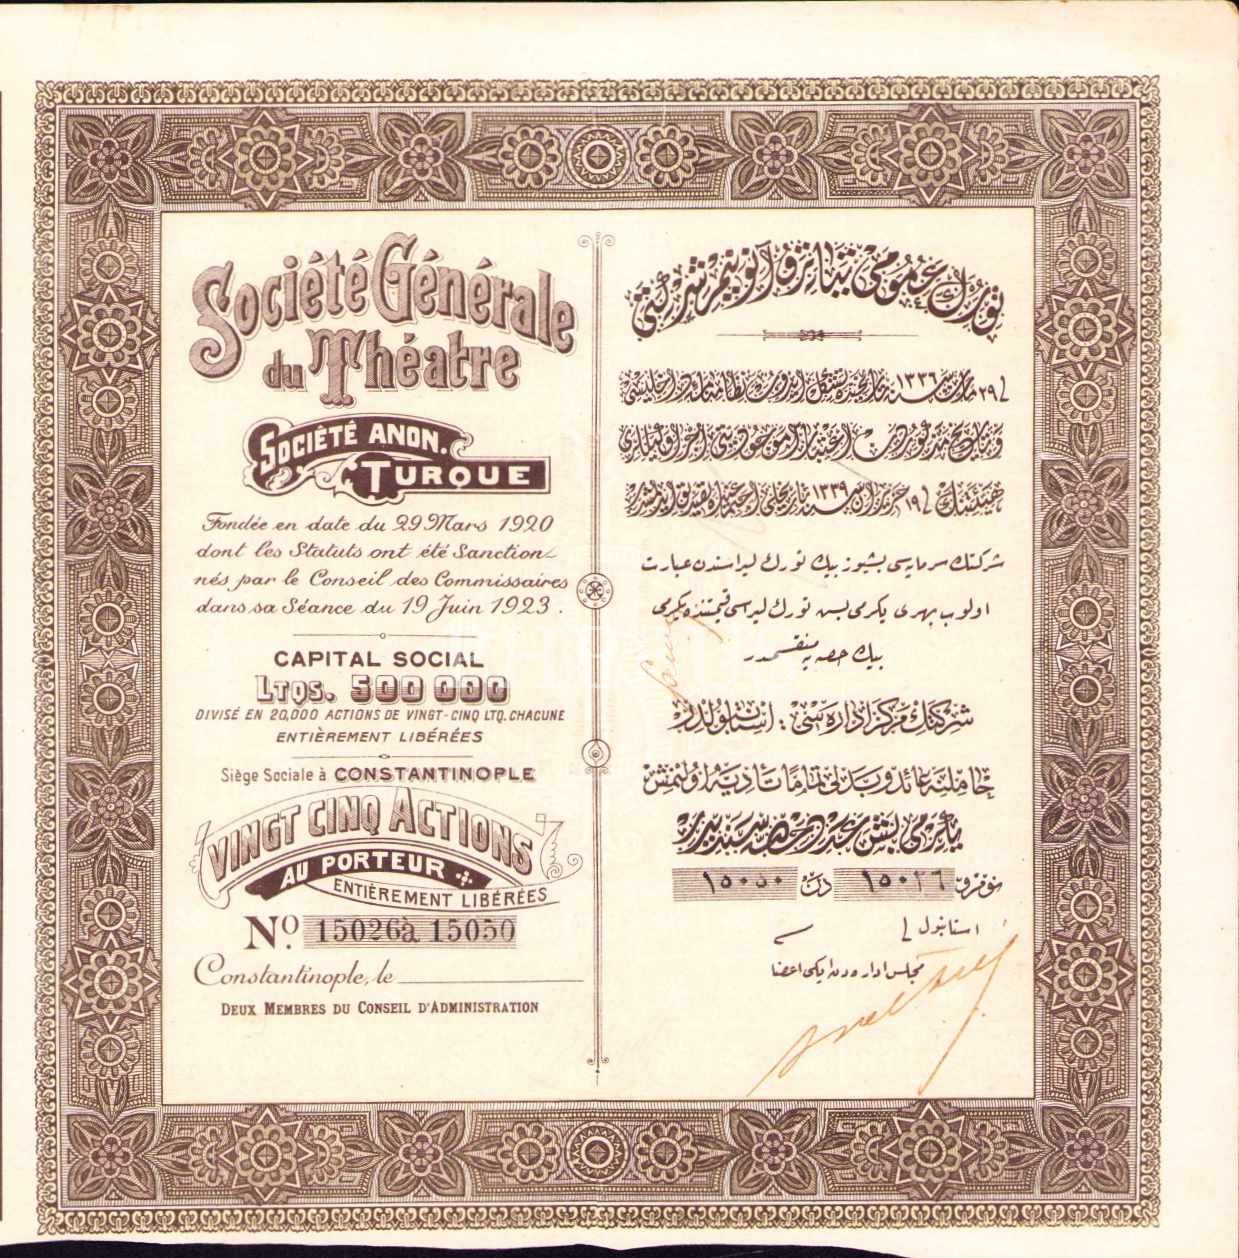 Société Générale
du Théatre
SOCIÉTÉ ANON.
TURQUE
Fondée en date du 29 Mars 1920
dont les Statuts ont été Sanction-
nés par le Conseil des Commissaires
dans sa Séance du 19 Juin 1923.
CAPITAL SOCIAL
LTQS. 500 000
DIVISÉ EN 20,000 ACTIONS DE VINGT-CINQ LTQ. CHACUNE
ENTIÈREMENT LIBÉRÉES
Siège Sociale à CONSTANTINOPLE
VINGT CINQ ACTIONS
AU PORTEUR
ENTIÈREMENT LIBÉRÉES
No. 15026à 15050
Constantinople, le
DEUX MEMBRES DU CONSEIL D'ADMINISTRATION
تورك عمومی تیاترو آنونیم شركتی
شركتك سرمایه‌سی بشیوز بیك تورك لیراسندن عبارت
اولوب بهری یكرمی بش تورك لیراسی قیمتنده یكرمی
بیك حصه‌یه منقسمدر
شركتك مركز اداره‌سی : استانبولدر
یكرمی بش عدد حصه سندیدر
نومرو ١٥٠٢٦ دن ١٥٠٥٠
استانبول فی
مجلس اداره‌دن ایكی اعضا